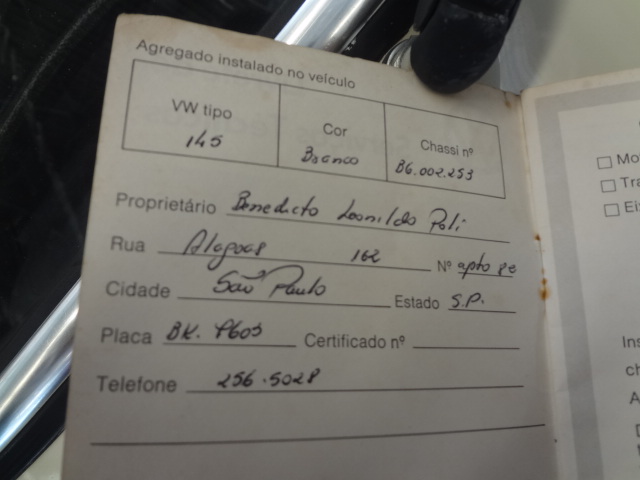 Agregado instalado no veículo
VW tipo Cor Chassi nº
145 Branco B6.002.253
Proprietário Benedicto Leonildo Poli
Rua Alagoas 162 Nº apto 8e
Cidade São Paulo Estado S.P.
Placa BK. 9603 Certificado nº
Telefone 256.5028
Mo
Tra
Ei
Ins
ch
A